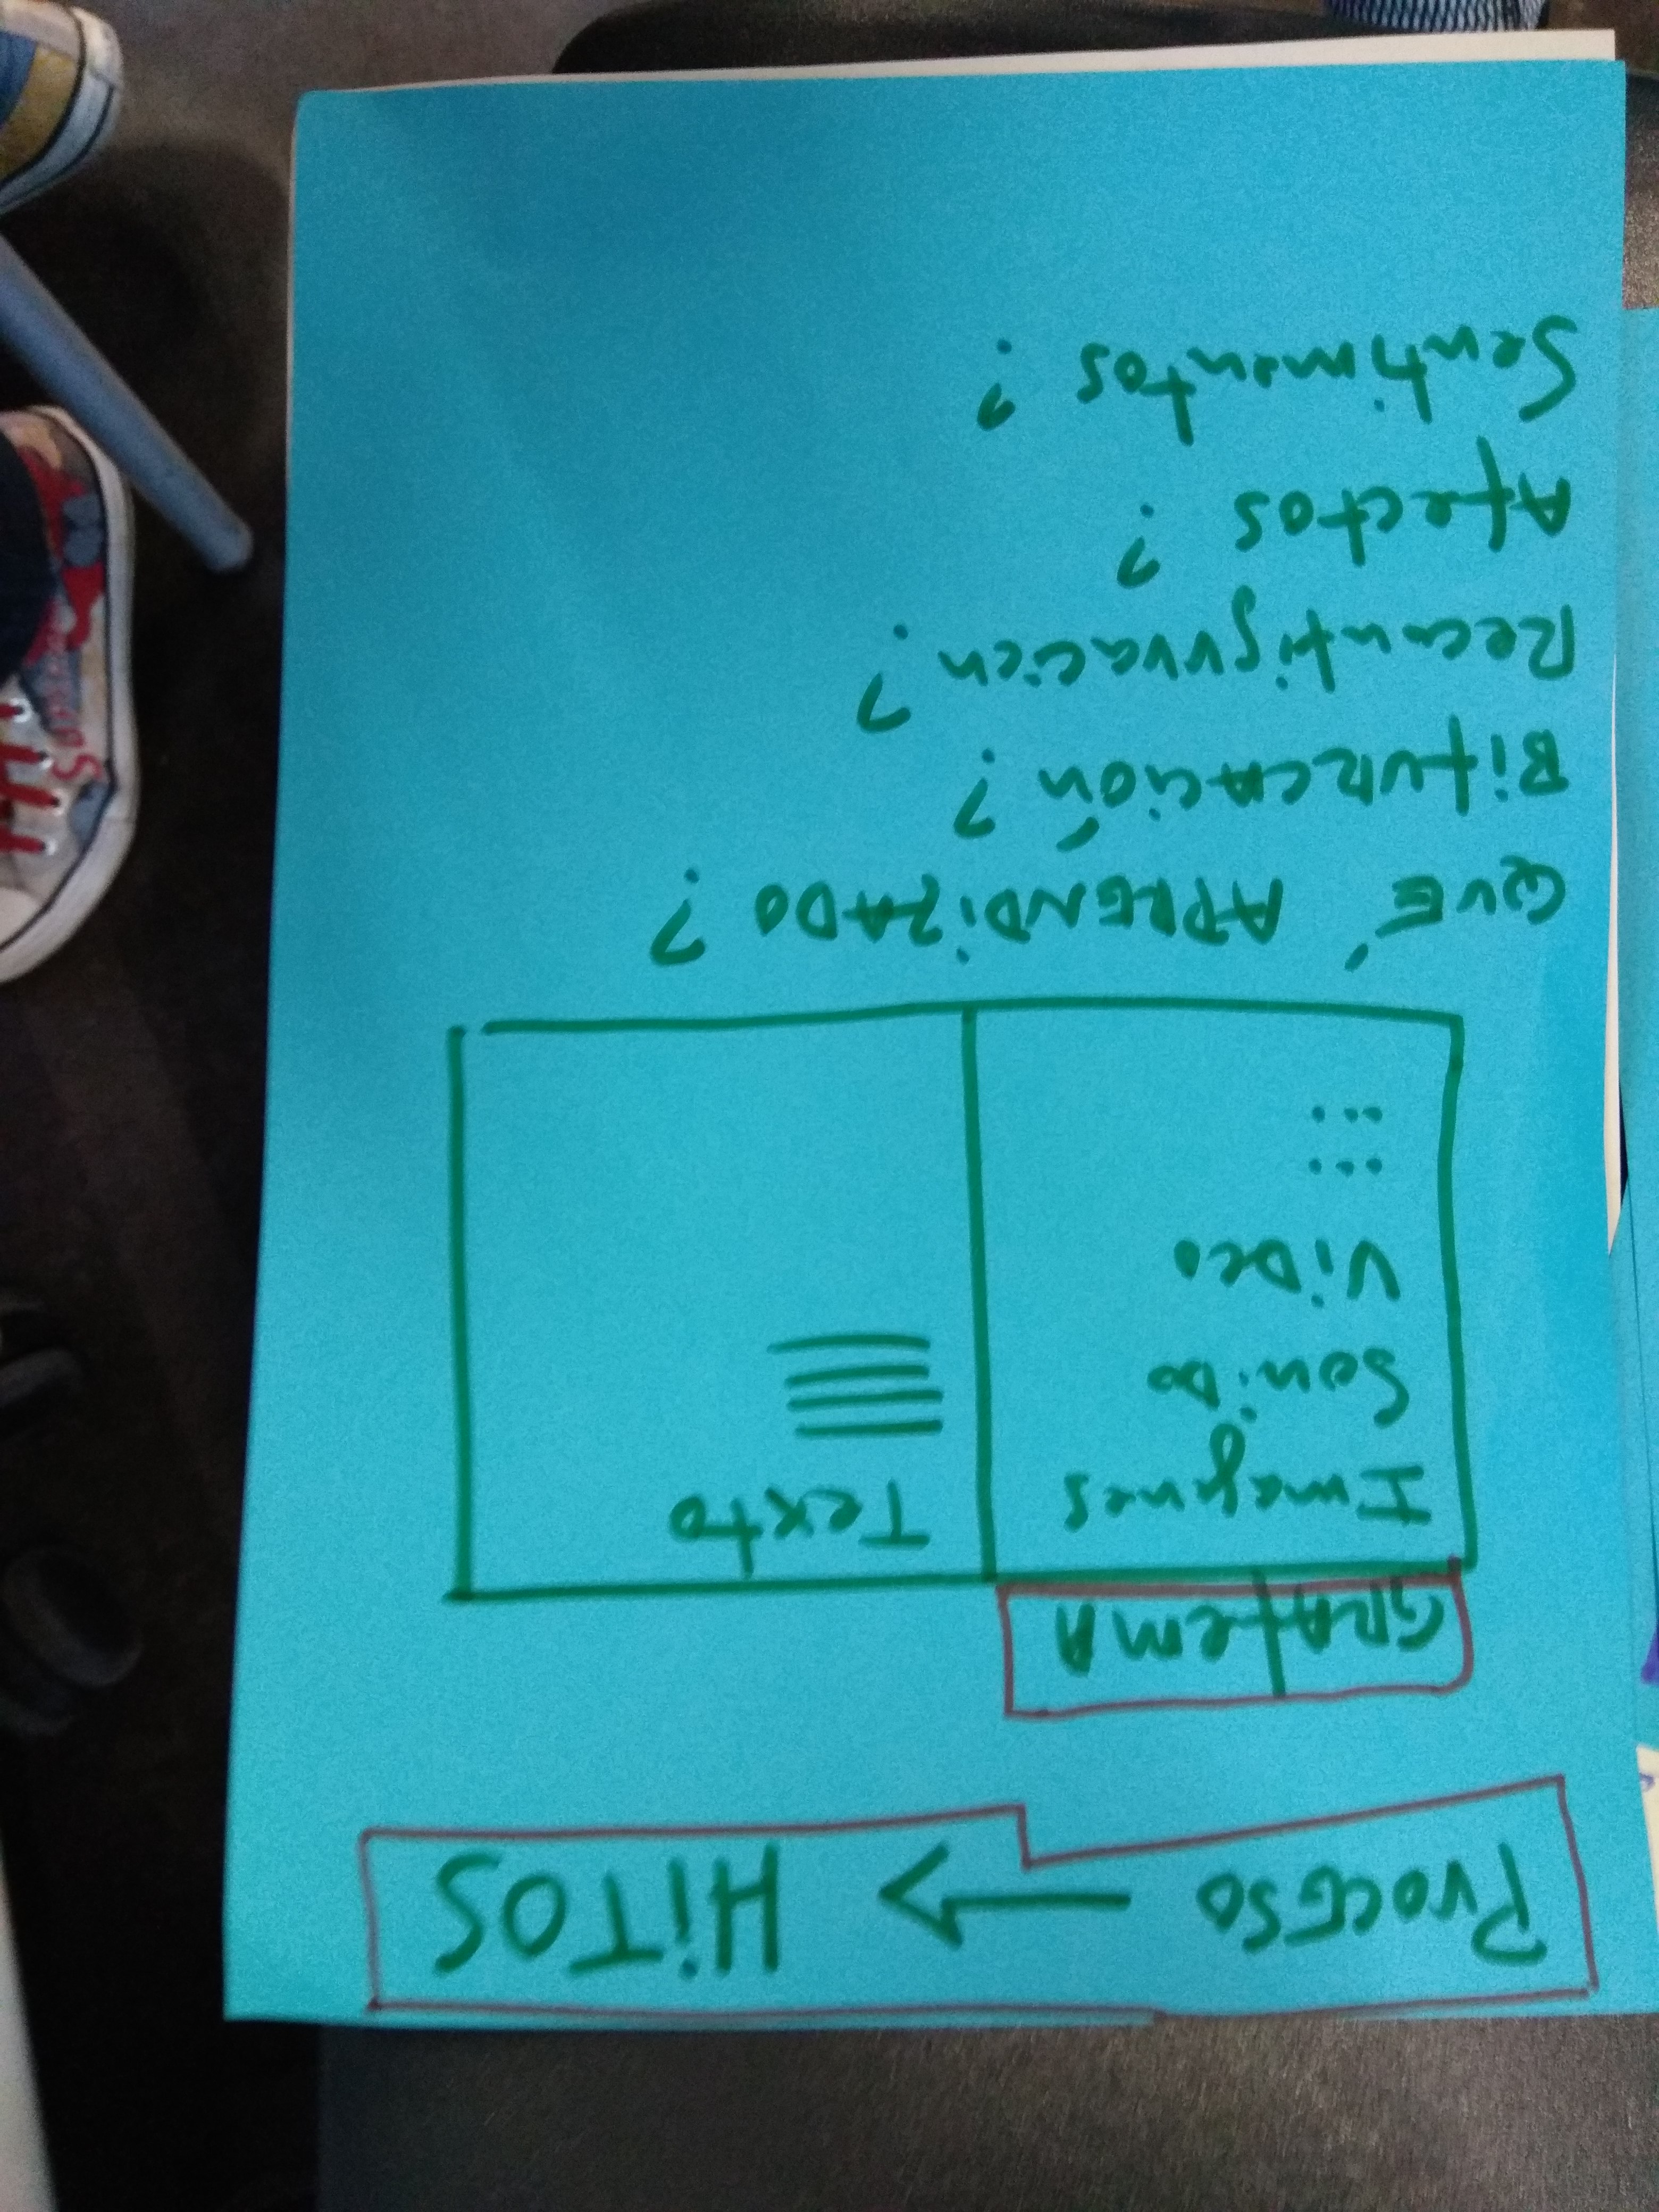 Proceso → HiTOS
GRAfEMA
Imagenes
Sonido
ViDeo
...
...
Texto
QUÉ APRENDIZADO?
BifURCACiÓn?
Reconfiguración?
Afectos?
Sentimentos?